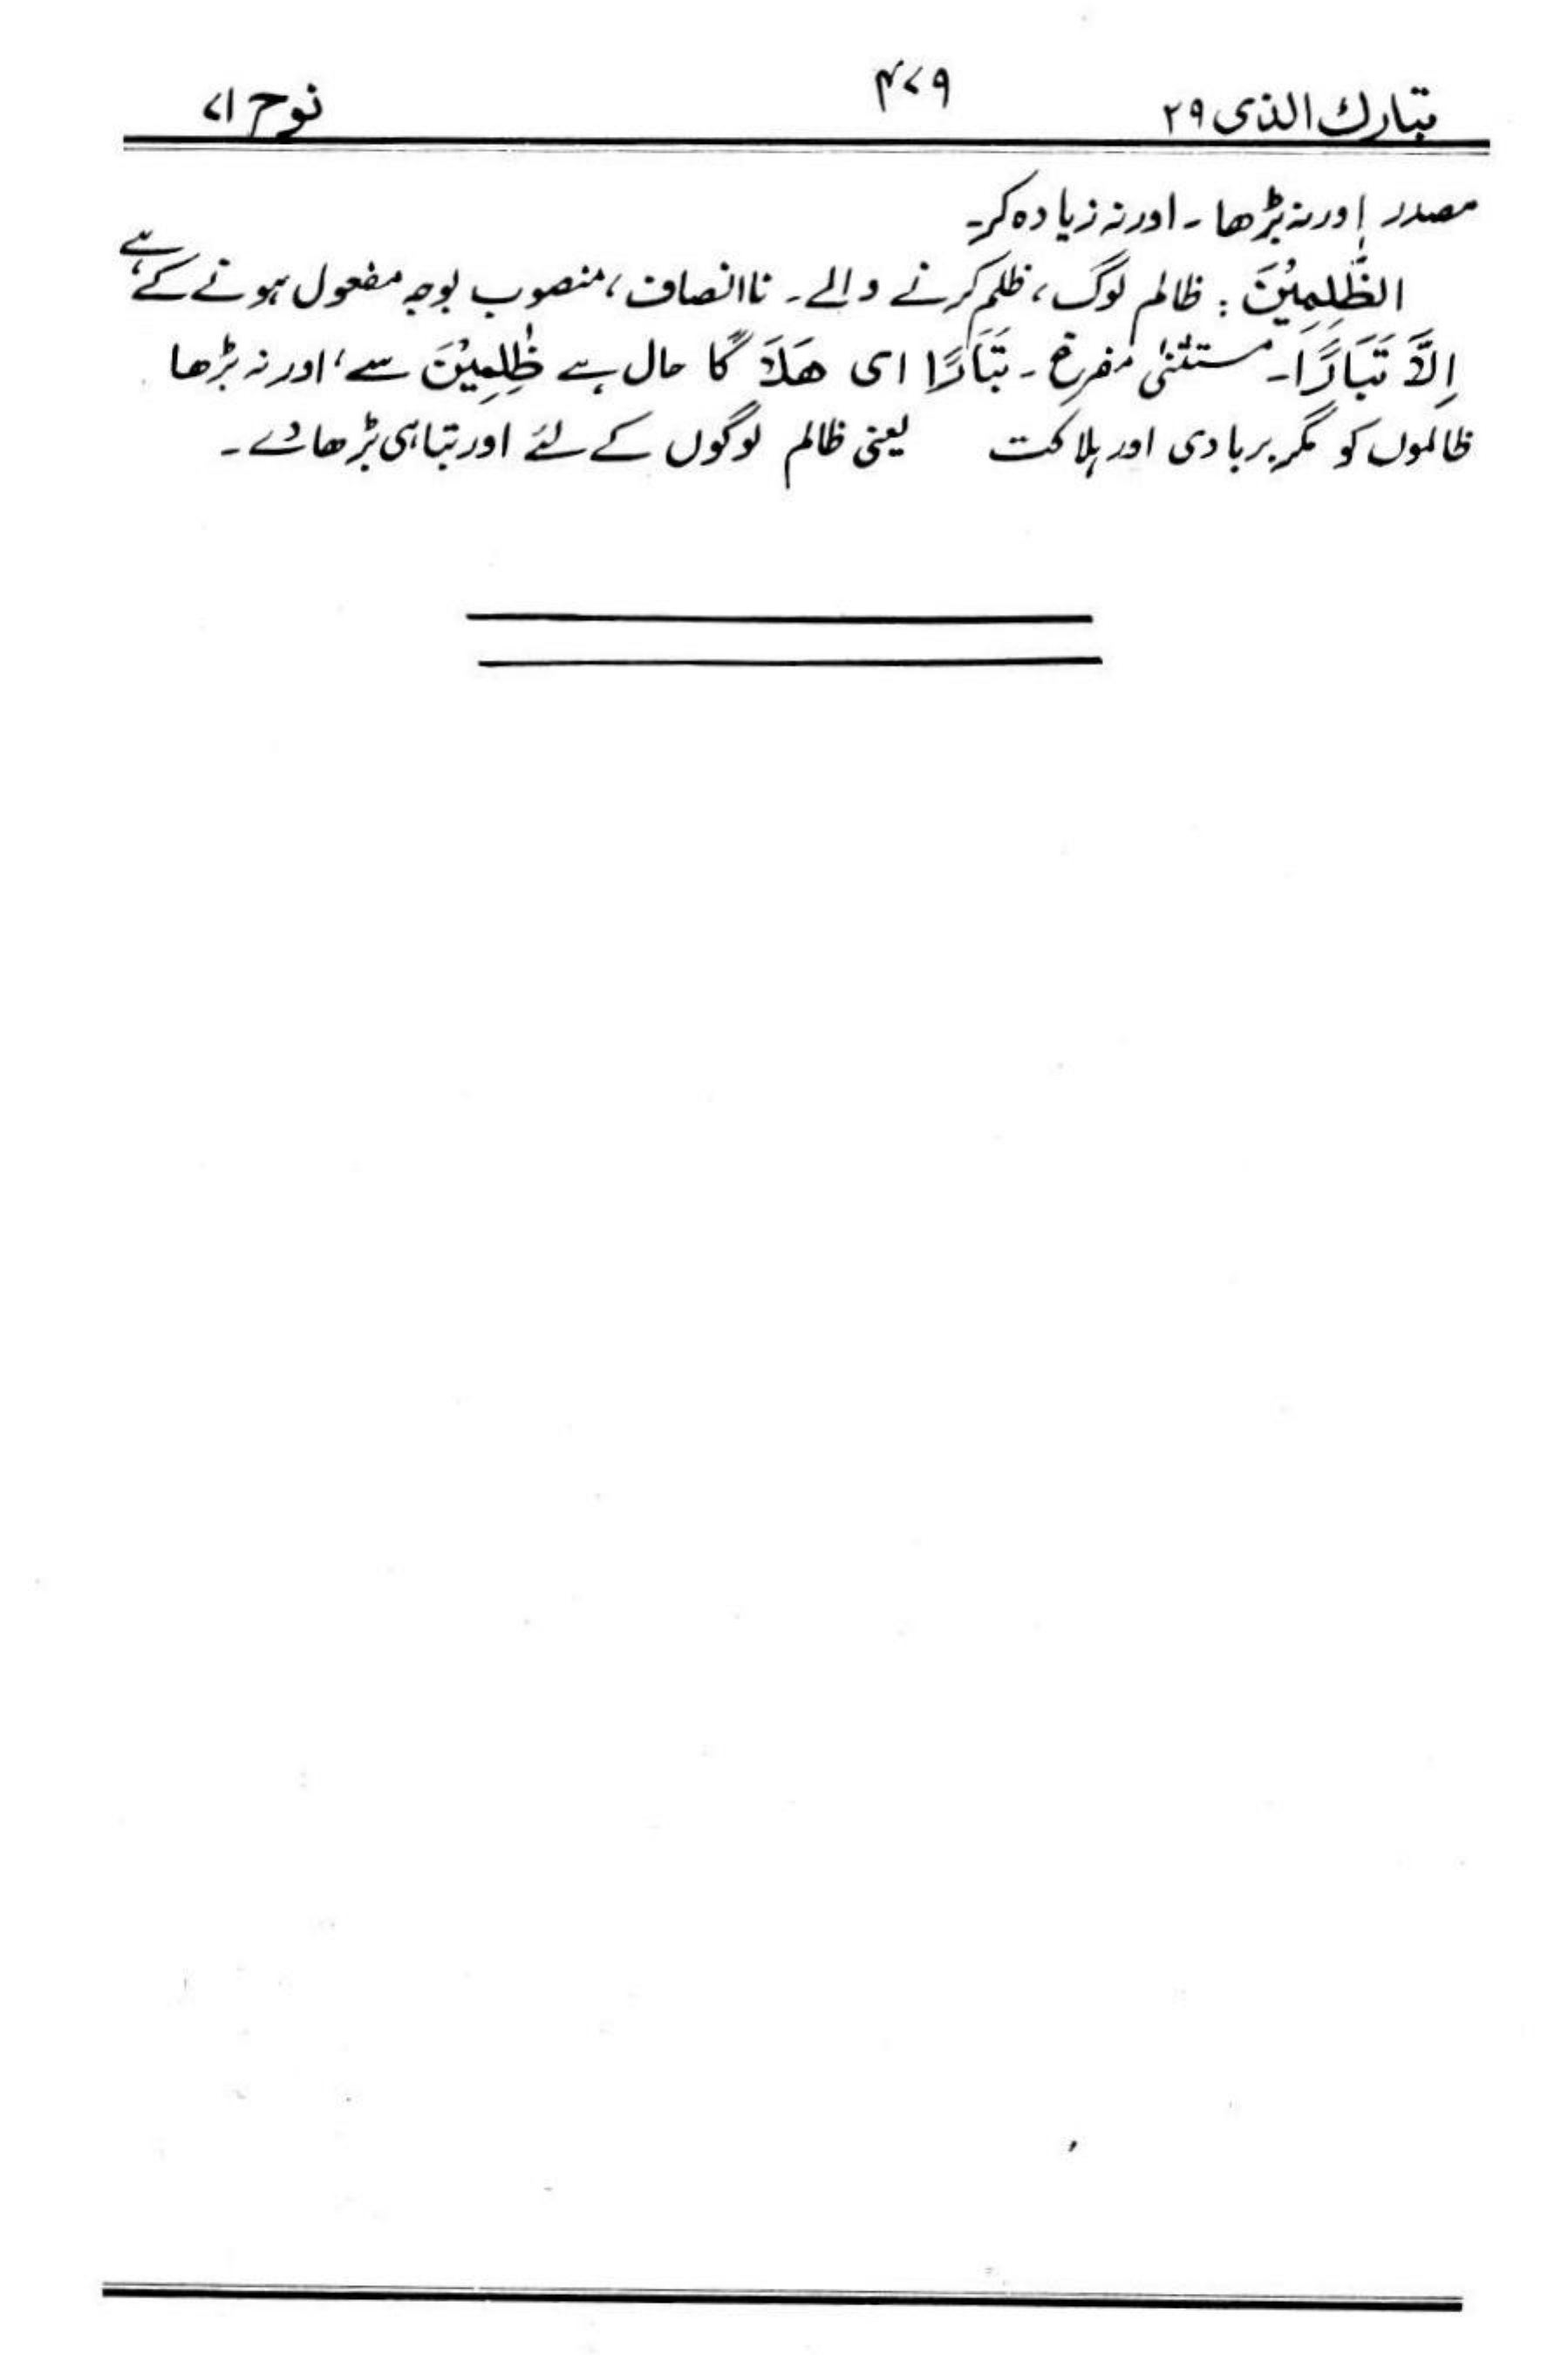 تبارك الذی ۲۹ ۴۷۹ نوح ۷۱
مصدر اور نہ بڑھا ۔ اور نہ زیادہ کر۔
الظّٰلِمِیْنَ : ظالم لوگ ، ظلم کرنے والے ۔ ناانصاف ، منصوب بوجہ مفعول ہونے کے ہے
اِلَّا تَبَارًا۔ مستثنیٰ مفرغ ۔ تَبَارًا ای هَلَاكًا حال ہے ظٰلِمِیْنَ سے ، اور نہ بڑھا
ظالموں کو مگر بربادی اور ہلاکت یعنی ظالم لوگوں کے لئے اور تباہی بڑھا دے ۔